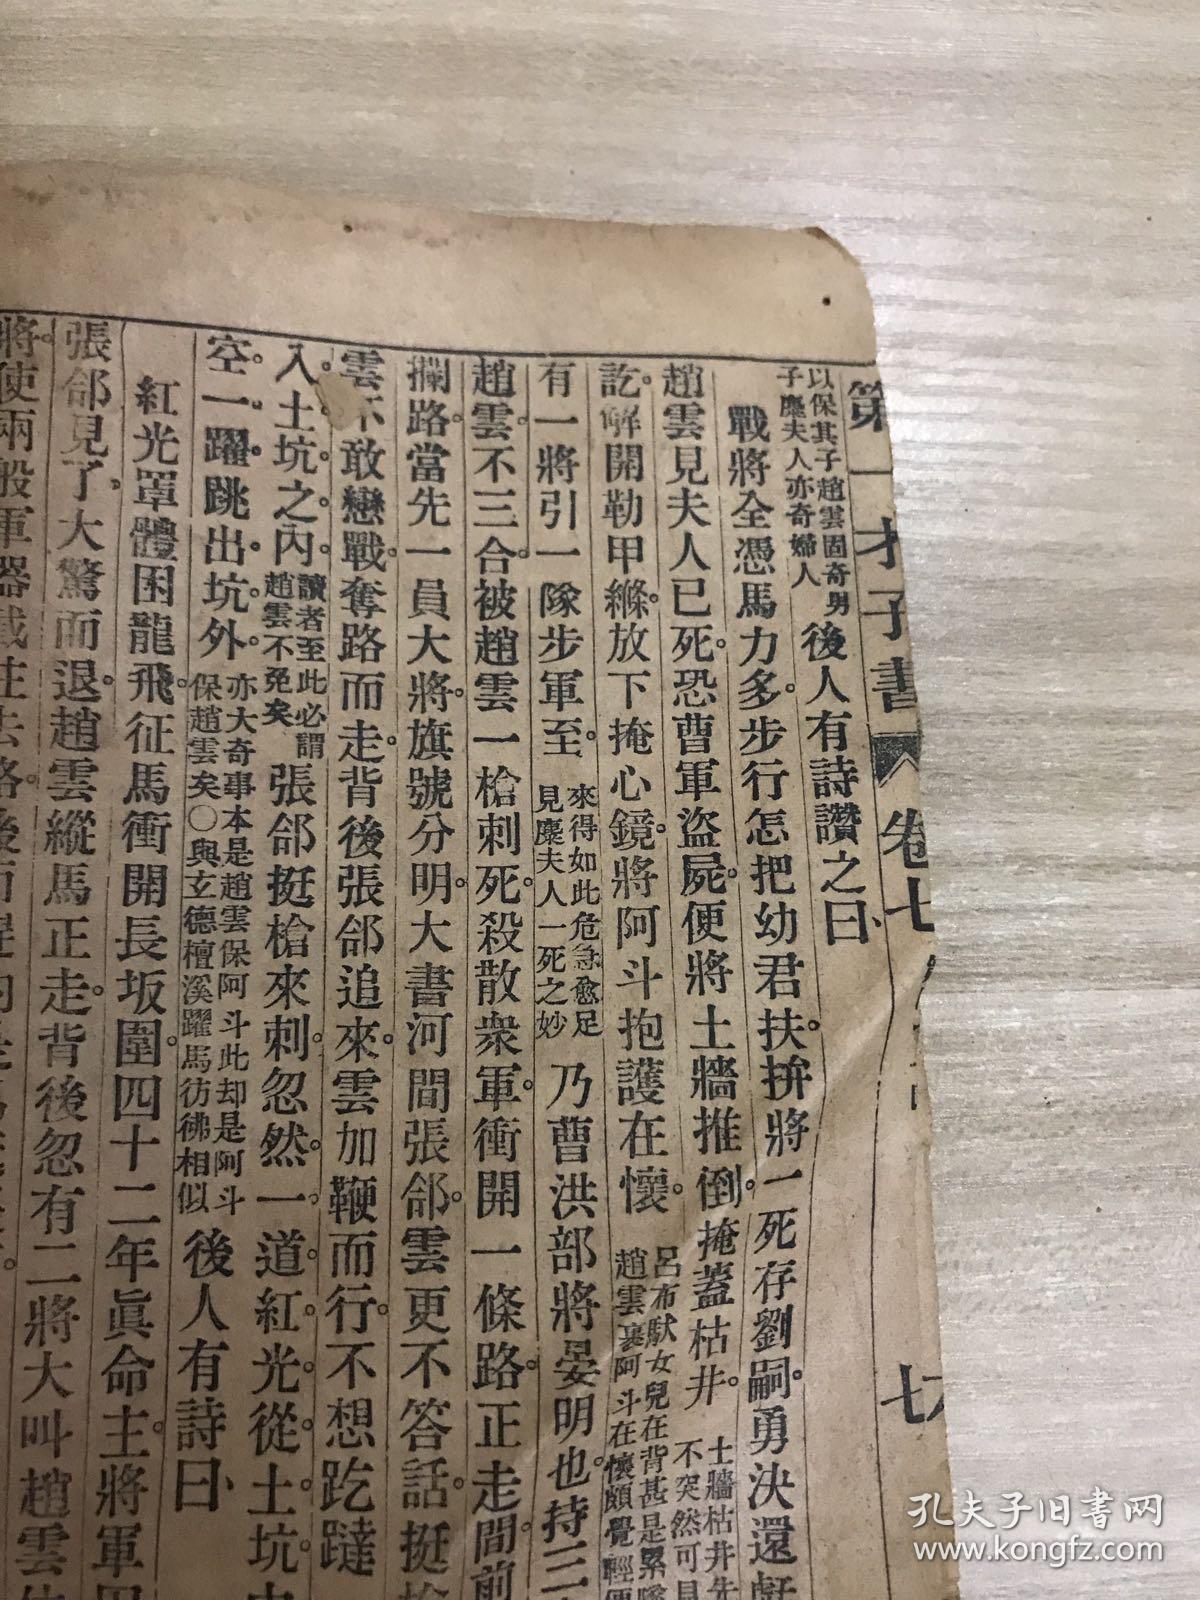 第一才子書 卷七
七
以保其子趙雲固奇男
子麋夫人亦奇婦人
後人有詩讚之曰
戰將全憑馬力多步行怎把幼君扶拚將一死存劉嗣勇決還
趙雲見夫人已死恐曹軍盜屍便將土牆推倒掩蓋枯井
土牆枯井先
不突然可見
訖解開勒甲縧放下掩心鏡將阿斗抱護在懷
呂布馱女兒在背甚是累墜
趙雲裹阿斗在懷頗覺輕便
有一將引一隊步軍至
來得如此危急愈足
見麋夫人一死之妙
乃曹洪部將晏明也持三
趙雲不三合被趙雲一槍刺死殺散衆軍衝開一條路正走間前
攔路當先一員大將旗號分明大書河間張郃雲更不答話挺槍
雲不敢戀戰奪路而走背後張郃追來雲加鞭而行不想趷躂
入土坑之內
讀者至此必謂
趙雲不免矣
張郃挺槍來刺忽然一道紅光從土坑中
空一躍跳出坑外
亦大奇事本是趙雲保阿斗此却是阿斗
保趙雲矣○與玄德檀溪躍馬彷彿相似
後人有詩曰
紅光罩體困龍飛征馬衝開長坂圍四十二年眞命主將軍因
張郃見了大驚而退趙雲縱馬正走背後忽有二將大叫趙雲休
將使兩般軍器截住去路後面趕的是
孔夫子旧书网
www.kongfz.com